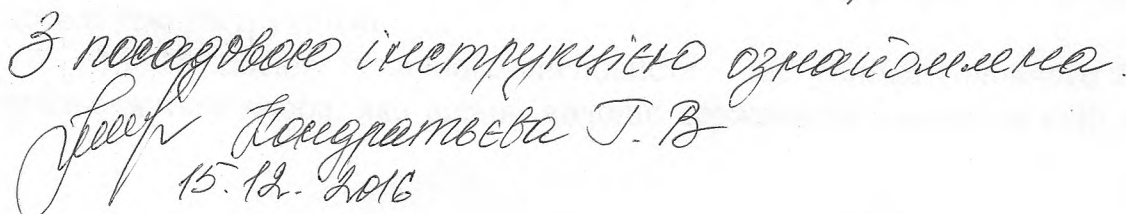 З посадовою інструкцією ознайомлена.
Кондратьєва Г. В
15.12. 2016